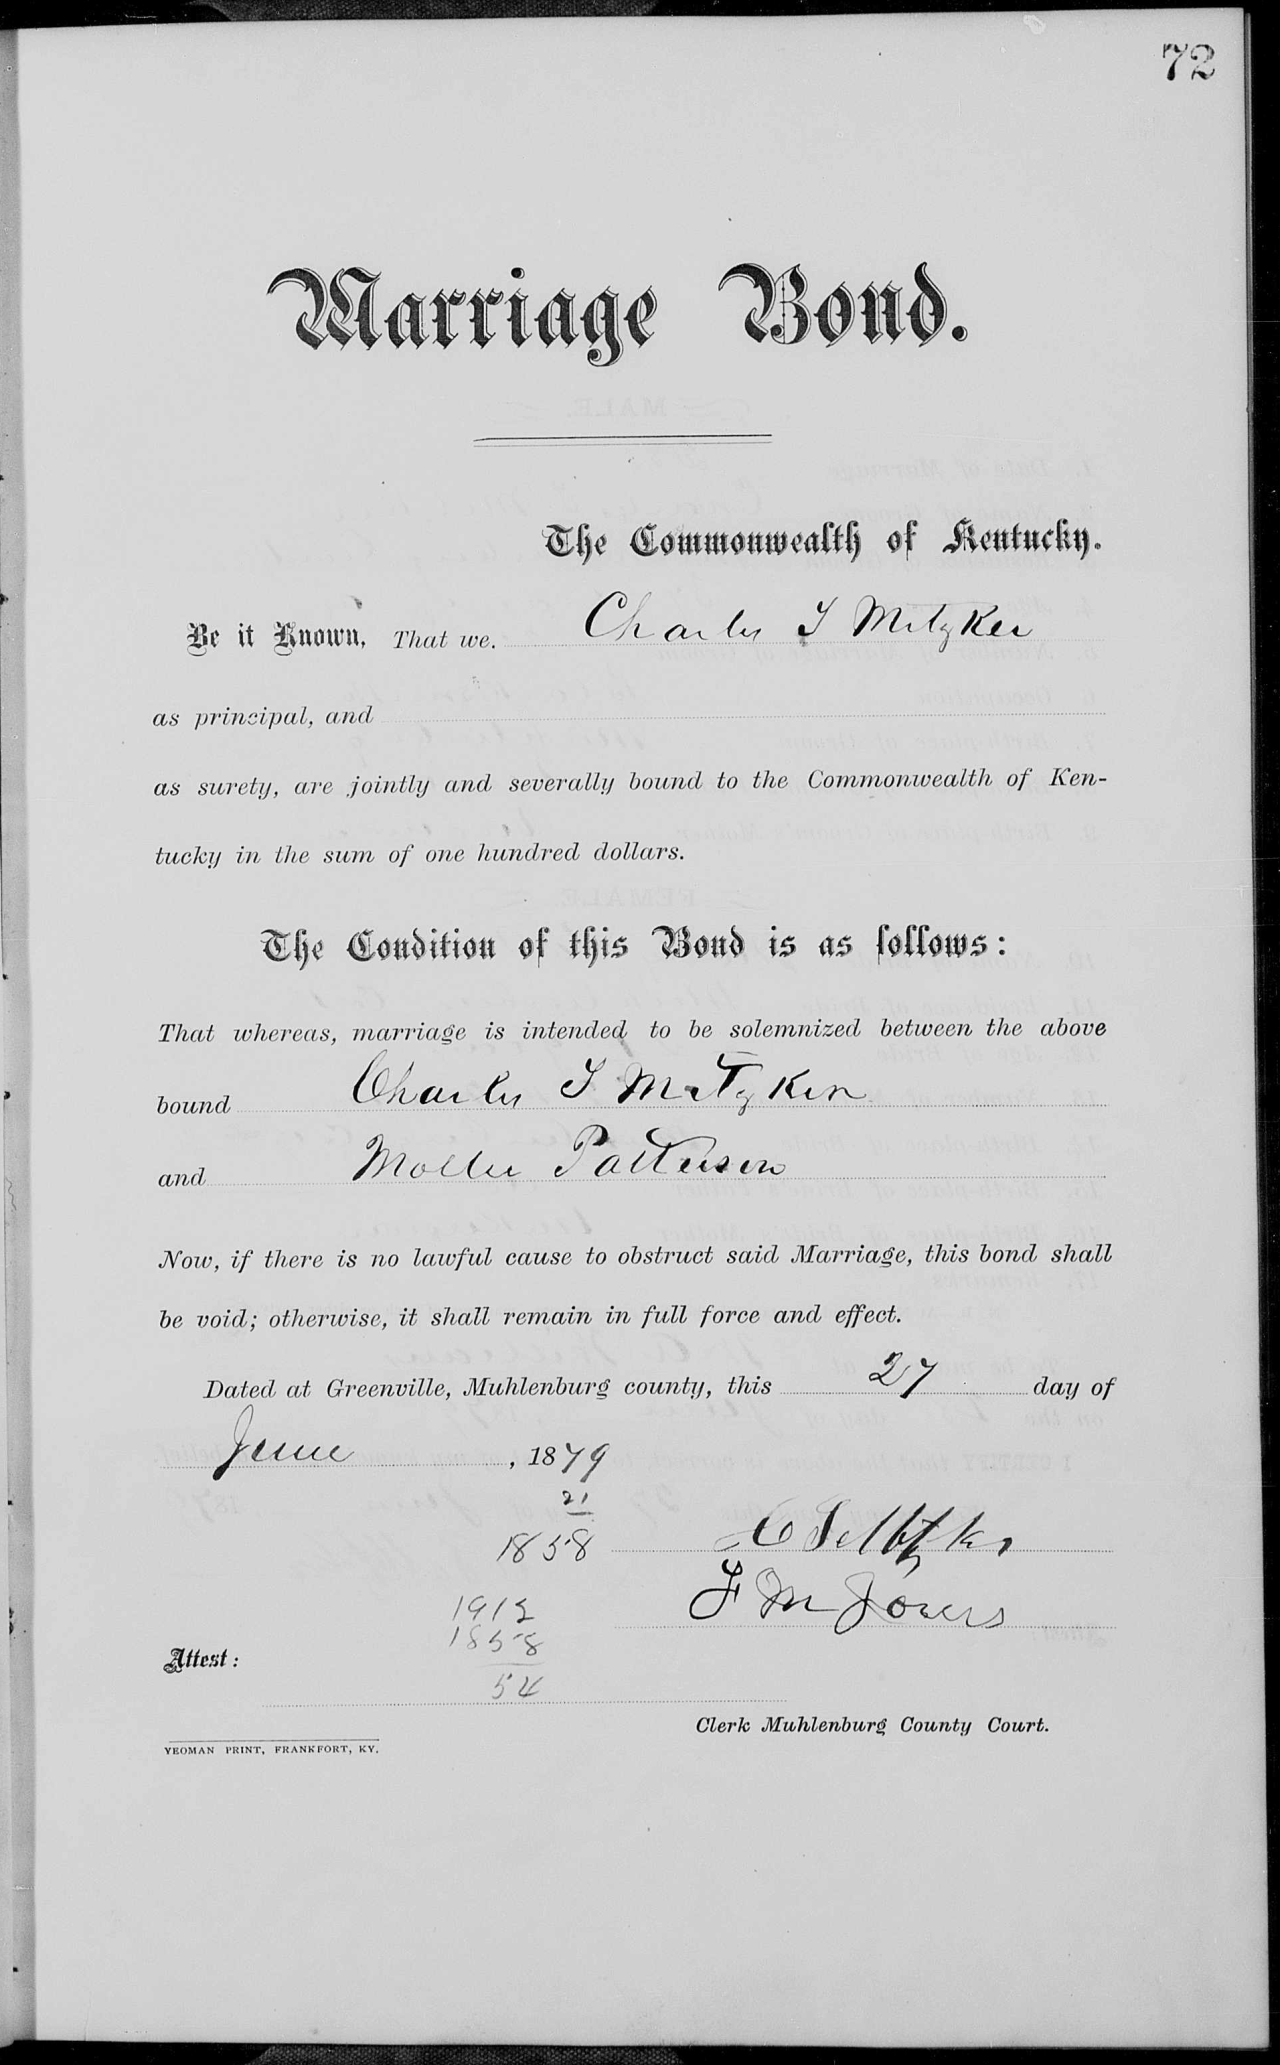 72
Marriage Bond.
The Commonwealth of Kentucky.
Be it Known, That we, Charles T Metzker
as principal, and
as surety, are jointly and severally bound to the Commonwealth of Ken-
tucky in the sum of one hundred dollars.
The Condition of this Bond is as follows:
That whereas, marriage is intended to be solemnized between the above
bound Charles T Metzker
and Mollie Patterson
Now, if there is no lawful cause to obstruct said Marriage, this bond shall
be void; otherwise, it shall remain in full force and effect.
Dated at Greenville, Muhlenburg county, this 27 day of
June, 1879
21
1858
F M
1912
1858
Attest:
54
Clerk Muhlenburg County Court.
YEOMAN PRINT, FRANKFORT, KY.